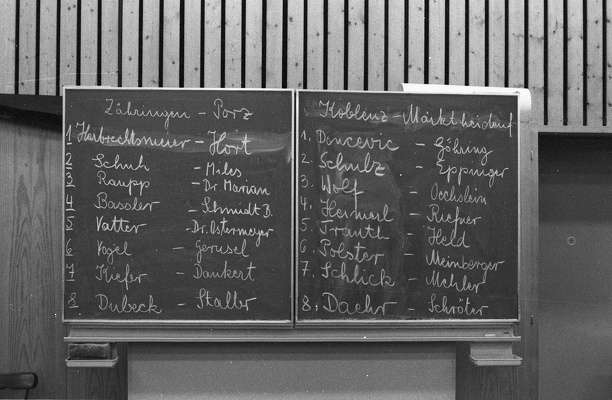 Zähringen - Porz
1 Haibrechtsmeier - Hort
2 Schuh - Miles
3 Raupp - Dr. Marian
4 Bassler - Schmidt D.
5 Vatter - Dr. Ostermeyer
6 Vogel - Gerusel
7 Kiefer - Dankert
8. Dubeck - Staller
Koblenz - Marktheidenf
1. Doncevic - Göhring
2. Schulz - Eppinger
3. Wolf - Oechslein
4. Heimerl - Riefner
5. Trauth - Held
6. Polster - Meinberger
7. Schlick - Mehler
8. Daehr - Schröter